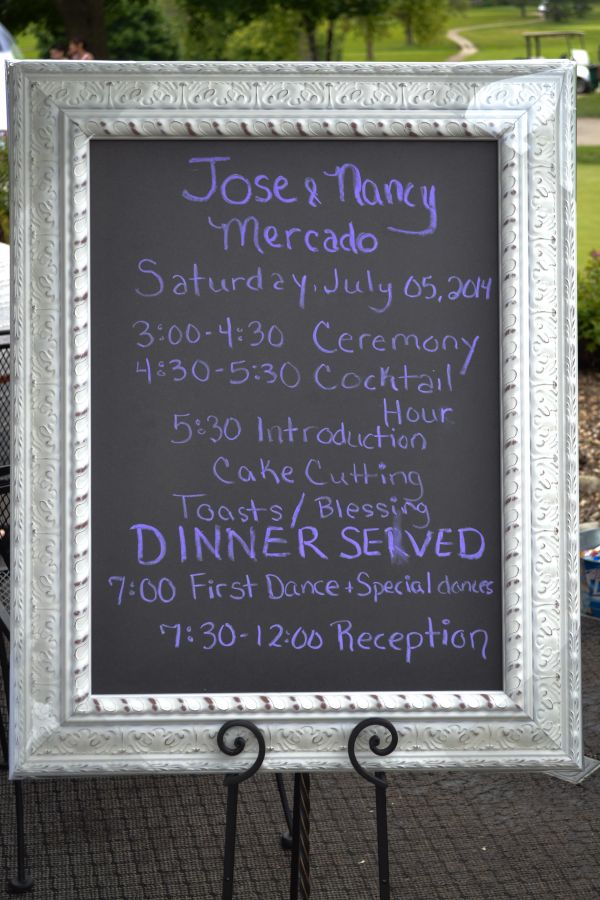 Jose & Nancy
Mercado
Saturday, July 05, 2014
3:00-4:30 Ceremony
4:30-5:30 Cocktail
Hour
5:30 Introduction
Cake Cutting
Toasts/Blessing
DINNER SERVED
7:00 First Dance + Special dances
7:30-12:00 Reception